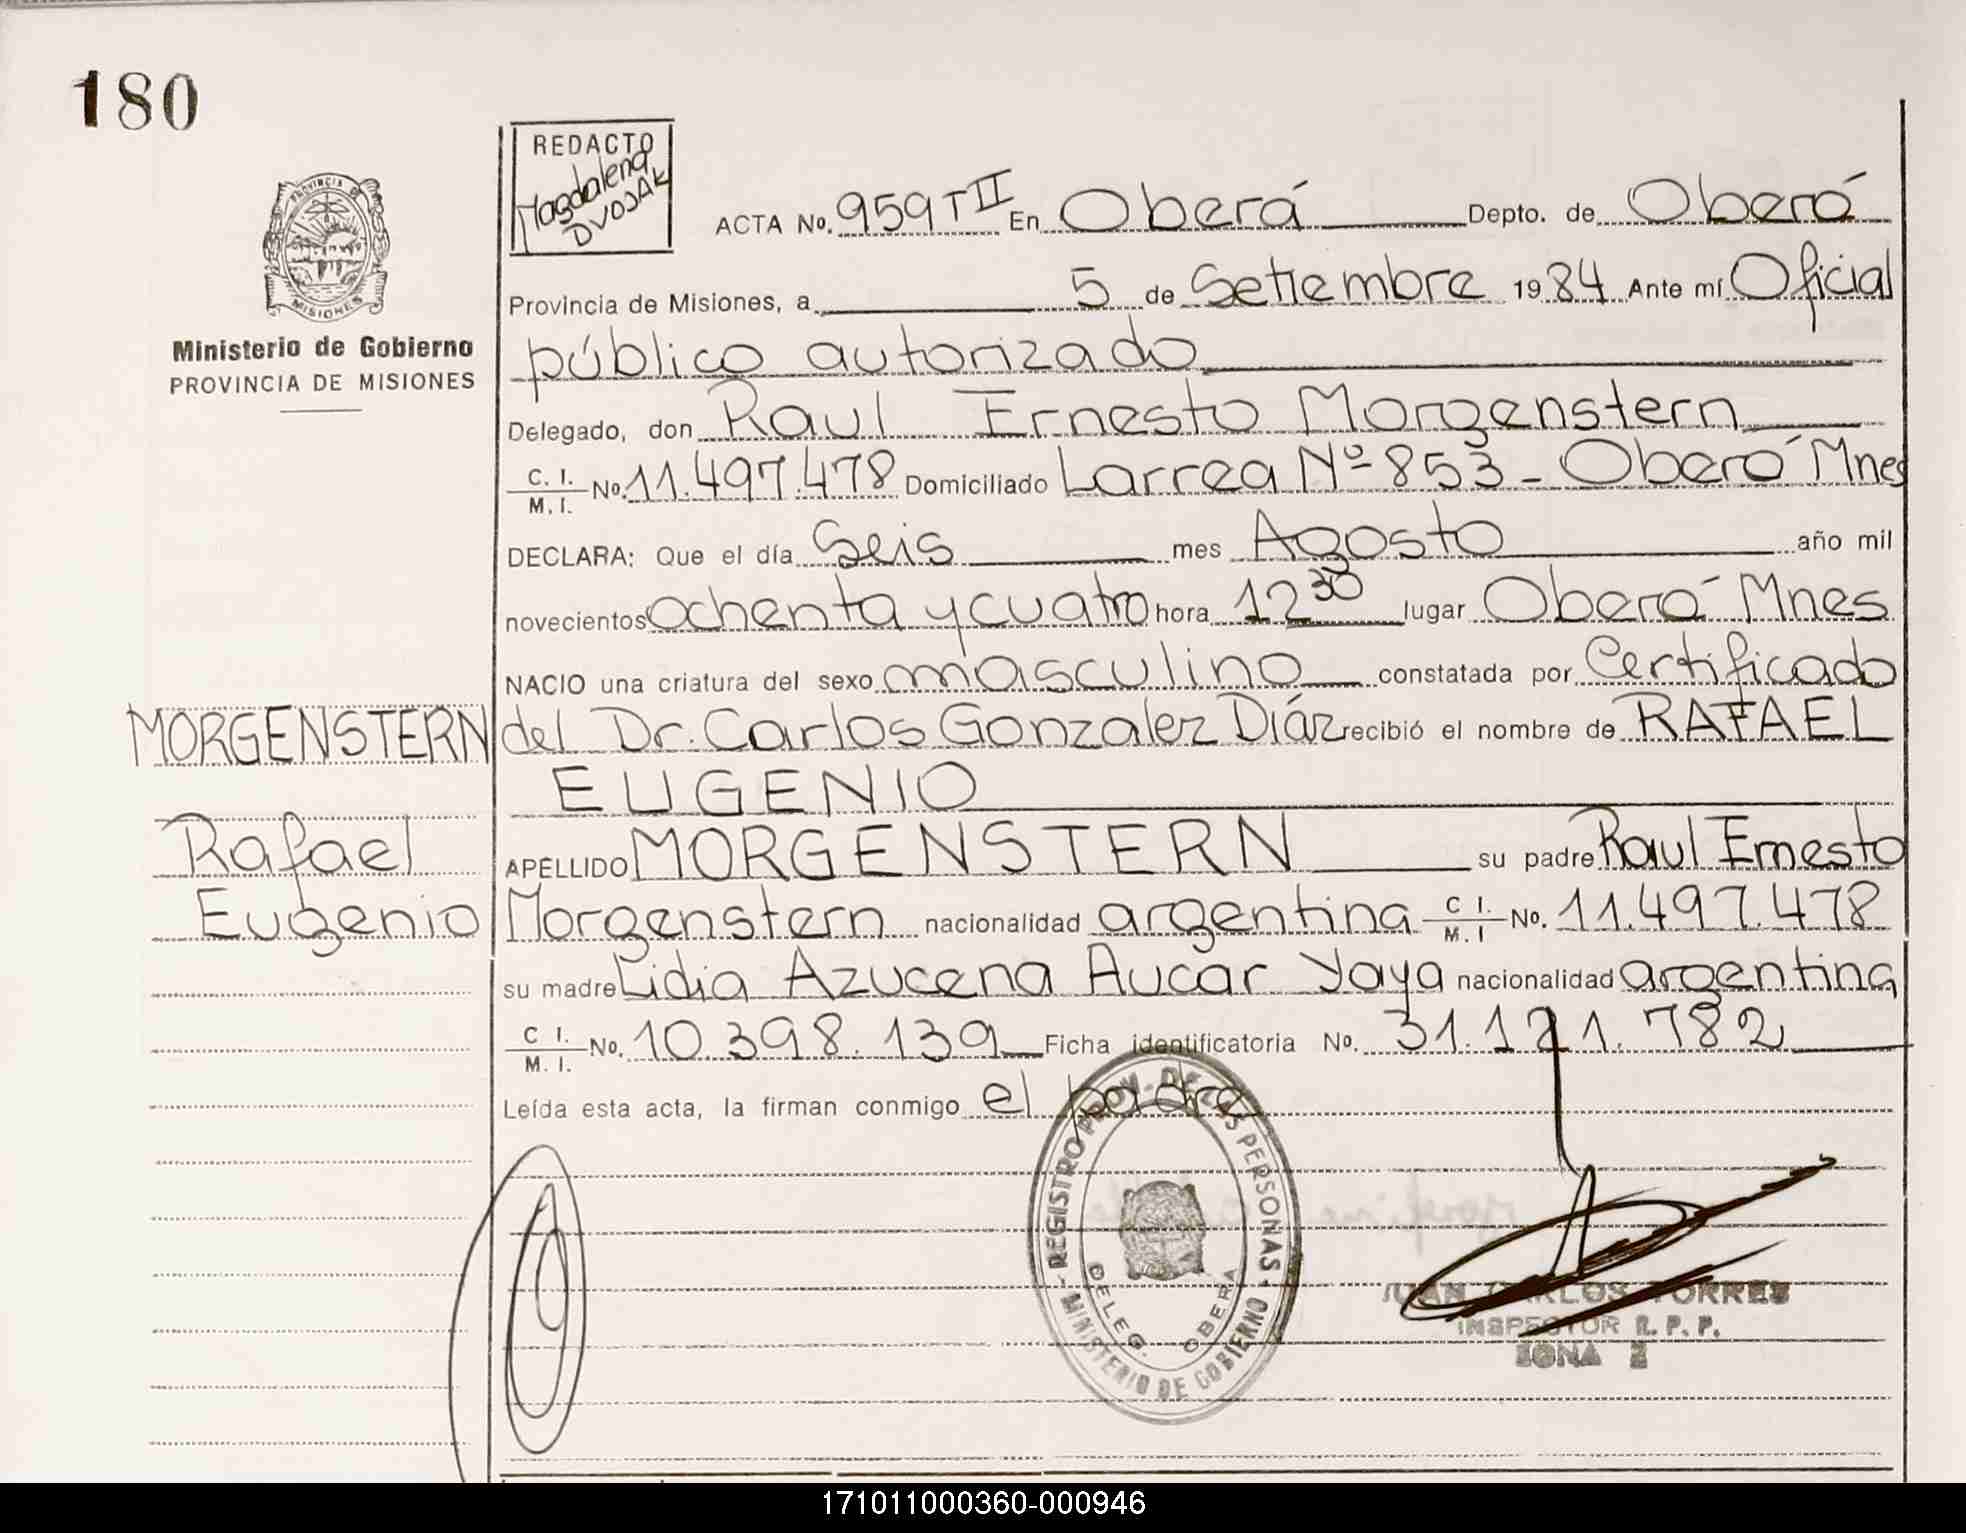 180
REDACTO
Magdalena
DVOJAK
ACTA No. 959 T II En Oberá Depto. de Oberá
PROVINCIA DE
MISIONES
Provincia de Misiones, a 5 de Setiembre 1984 Ante mí Oficial
Ministerio de Gobierno
PROVINCIA DE MISIONES
público autorizado
Delegado, don Raul Ernesto Morgenstern
C. I. M. I. No. 11.497.478 Domiciliado Larrea Nº 853 - Oberá Mnes
DECLARA: Que el día Seis mes Agosto año mil
novecientos ochenta y cuatro hora 12 30 lugar Oberá Mnes
NACIO una criatura del sexo masculino constatada por Certificado
MORGENSTERN
del Dr. Carlos Gonzalez Diáz recibió el nombre de RAFAEL
EUGENIO
Rafael
Eugenio
APELLIDO MORGENSTERN su padre Raul Ernesto
Morgenstern nacionalidad argentina C I. M. I No. 11.497.478
su madre Lidia Azucena Aucar Yaya nacionalidad argentina
C I. M. I. No. 10.398.139 Ficha identificatoria No. 31.121.782
Leída esta acta, la firman conmigo el padre
REGISTRO PROV. DE LAS PERSONAS
MINISTERIO DE GOBIERNO
DELEG. OBERA
JUAN CARLOS TORRES
INSPECTOR R. P. P.
ZONA 2
171011000360-000946